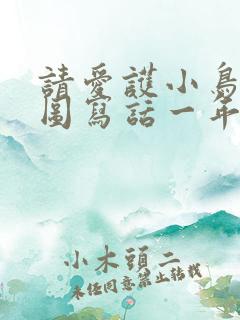 請愛護小鳥
圖寫話一年
小木頭二
未經同意禁止轉載